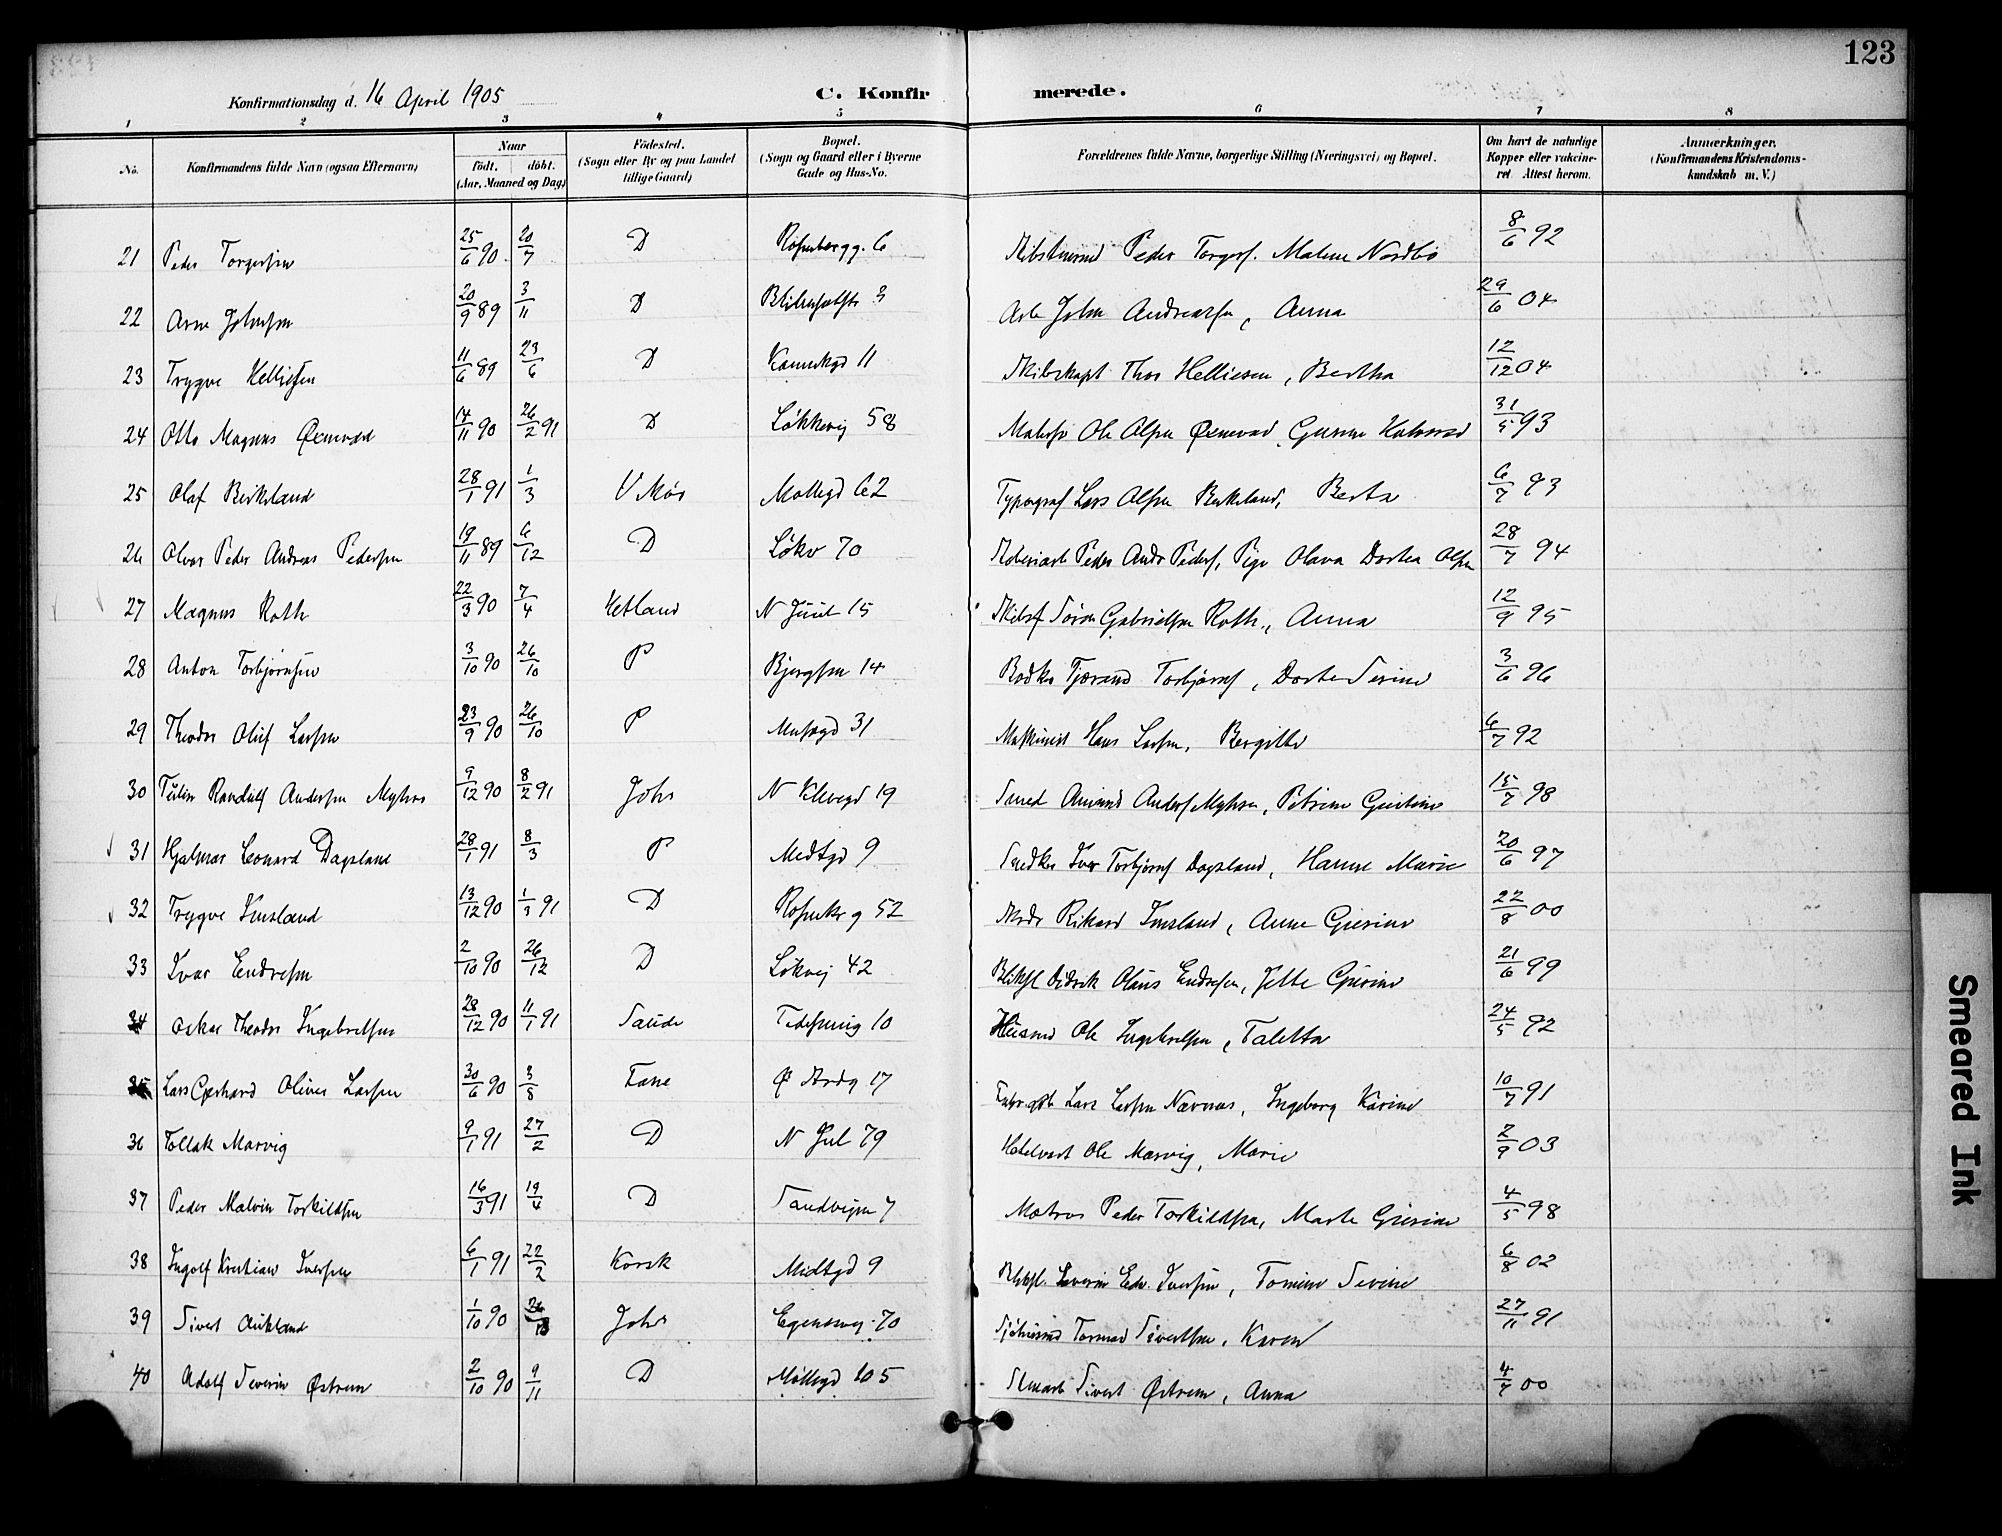 123
Konfirmationsdag d. 16 April 1905
C. Konfirmerede.
1 2 3 4 5 6 7 8
No. Konfirmandens fulde Navn (ogsaa Efternavn) Naar født. døbt. (Aar, Maaned og Dag) Fødested. (Sogn eller By og paa Landet tillige Gaard) Bopæl. (Sogn og Gaard eller i Byerne Gade og Hus-No. Forældrenes fulde Navne, borgerlige Stilling (Næringsvei) og Bopæl. Om havt de naturlige Kopper eller vakcineret Attest herom. Anmærkninger. (Konfirmandens Kristendomskundskab m. V.)
21 Peder Torgersen 25/6 90 20/7 D Rosenbergg. 6 Peder Torgers. Malene Nordbø 8/6 92
22 Arne Johnsen 20/9 89 3/11 D 3 Arb John Andreassen, Anna 29/6 04
23 Trygve Helliesen 11/6 89 23/6 D 11 Skibskapt Thor Helliesen, Bertha 12/12 04
24 Otto Magnus Øxnevad 14/11 90 26/2 91 D Løkkevej 58 Ole Olsen Øxnevad, 31/5 93
25 Olaf Birkeland 28/1 91 1/3 V Mør Møllegd 62 Typograf Lars Olsen Birkeland, Berta 6/7 93
26 Olvar Peder Andreas Pedersen 19/11 89 6/12 D Løkv 70 Peder Andr Peders, Pige Olava Dortea Olsen 28/7 94
27 Magnus Roth 22/3 90 7/4 Hetland N Juul 15 Søren Gabrielsen Roth, Anna 12/9 95
28 Anton Torbjørnsen 3/10 90 26/10 P Bjergsen 14 Bødker Tjerand Torbjørns, Dorte Serine 3/6 96
29 Theodor Oluf Larsen 23/9 90 26/10 P 31 Maskinist Hans Larsen, Bergitte 6/7 92
30 Randulf Andersen Myhre 9/12 90 8/2 91 Johs N Klevegd 19 Smed Anders Myhre, Petrine Gurstine 15/7 98
31 Hjalmar Leonard Dagsland 28/1 91 8/3 P Midtgd 9 Snedker Iver Torbjørns Dagsland, Hanne Marie 20/6 97
32 Trygve Imsland 13/12 90 1/3 91 D 52 Rikard Imsland, Anne Gurine 22/8 00
33 Ivar Endresen 2/10 90 26/12 D Løkvej 42 Didrik Olaus Endresen, Jette Gurine 21/6 99
34 Oskar Theodor Ingebretsen 28/12 90 11/1 91 Saude 10 Husmd Ole Ingebretsen, Taletta 24/5 92
35 Lars Gerhard Oliver Larsen 30/6 90 3/8 Fane Ø Strdg 17 Lars Larsen Nærnæs, Ingeborg Karine 10/7 91
36 Tollak Marvig 9/1 91 27/2 D N Jul 79 Hotelvært Ole Marvig, Marie 2/9 03
37 Peder Malvin Torkildsen 16/3 91 19/4 D Sandvigen 7 Matros Peder Torkildsen, Marte Gurine 4/5 98
38 Ingolf Kristian Iversen 6/1 91 22/2 Korsk Midtgd 9 Severin Edv. Iversen, Tomine Sevine 6/8 02
39 Sivert Aukland 1/10 90 Johs Egenesvej 70 Tormod Sivertsen, Karen 27/11 91
40 Adolf Severin Østrem 2/10 90 9/11 D Møllegd 105 Sivert Østrem, Anna 4/7 00
Smeared Ink